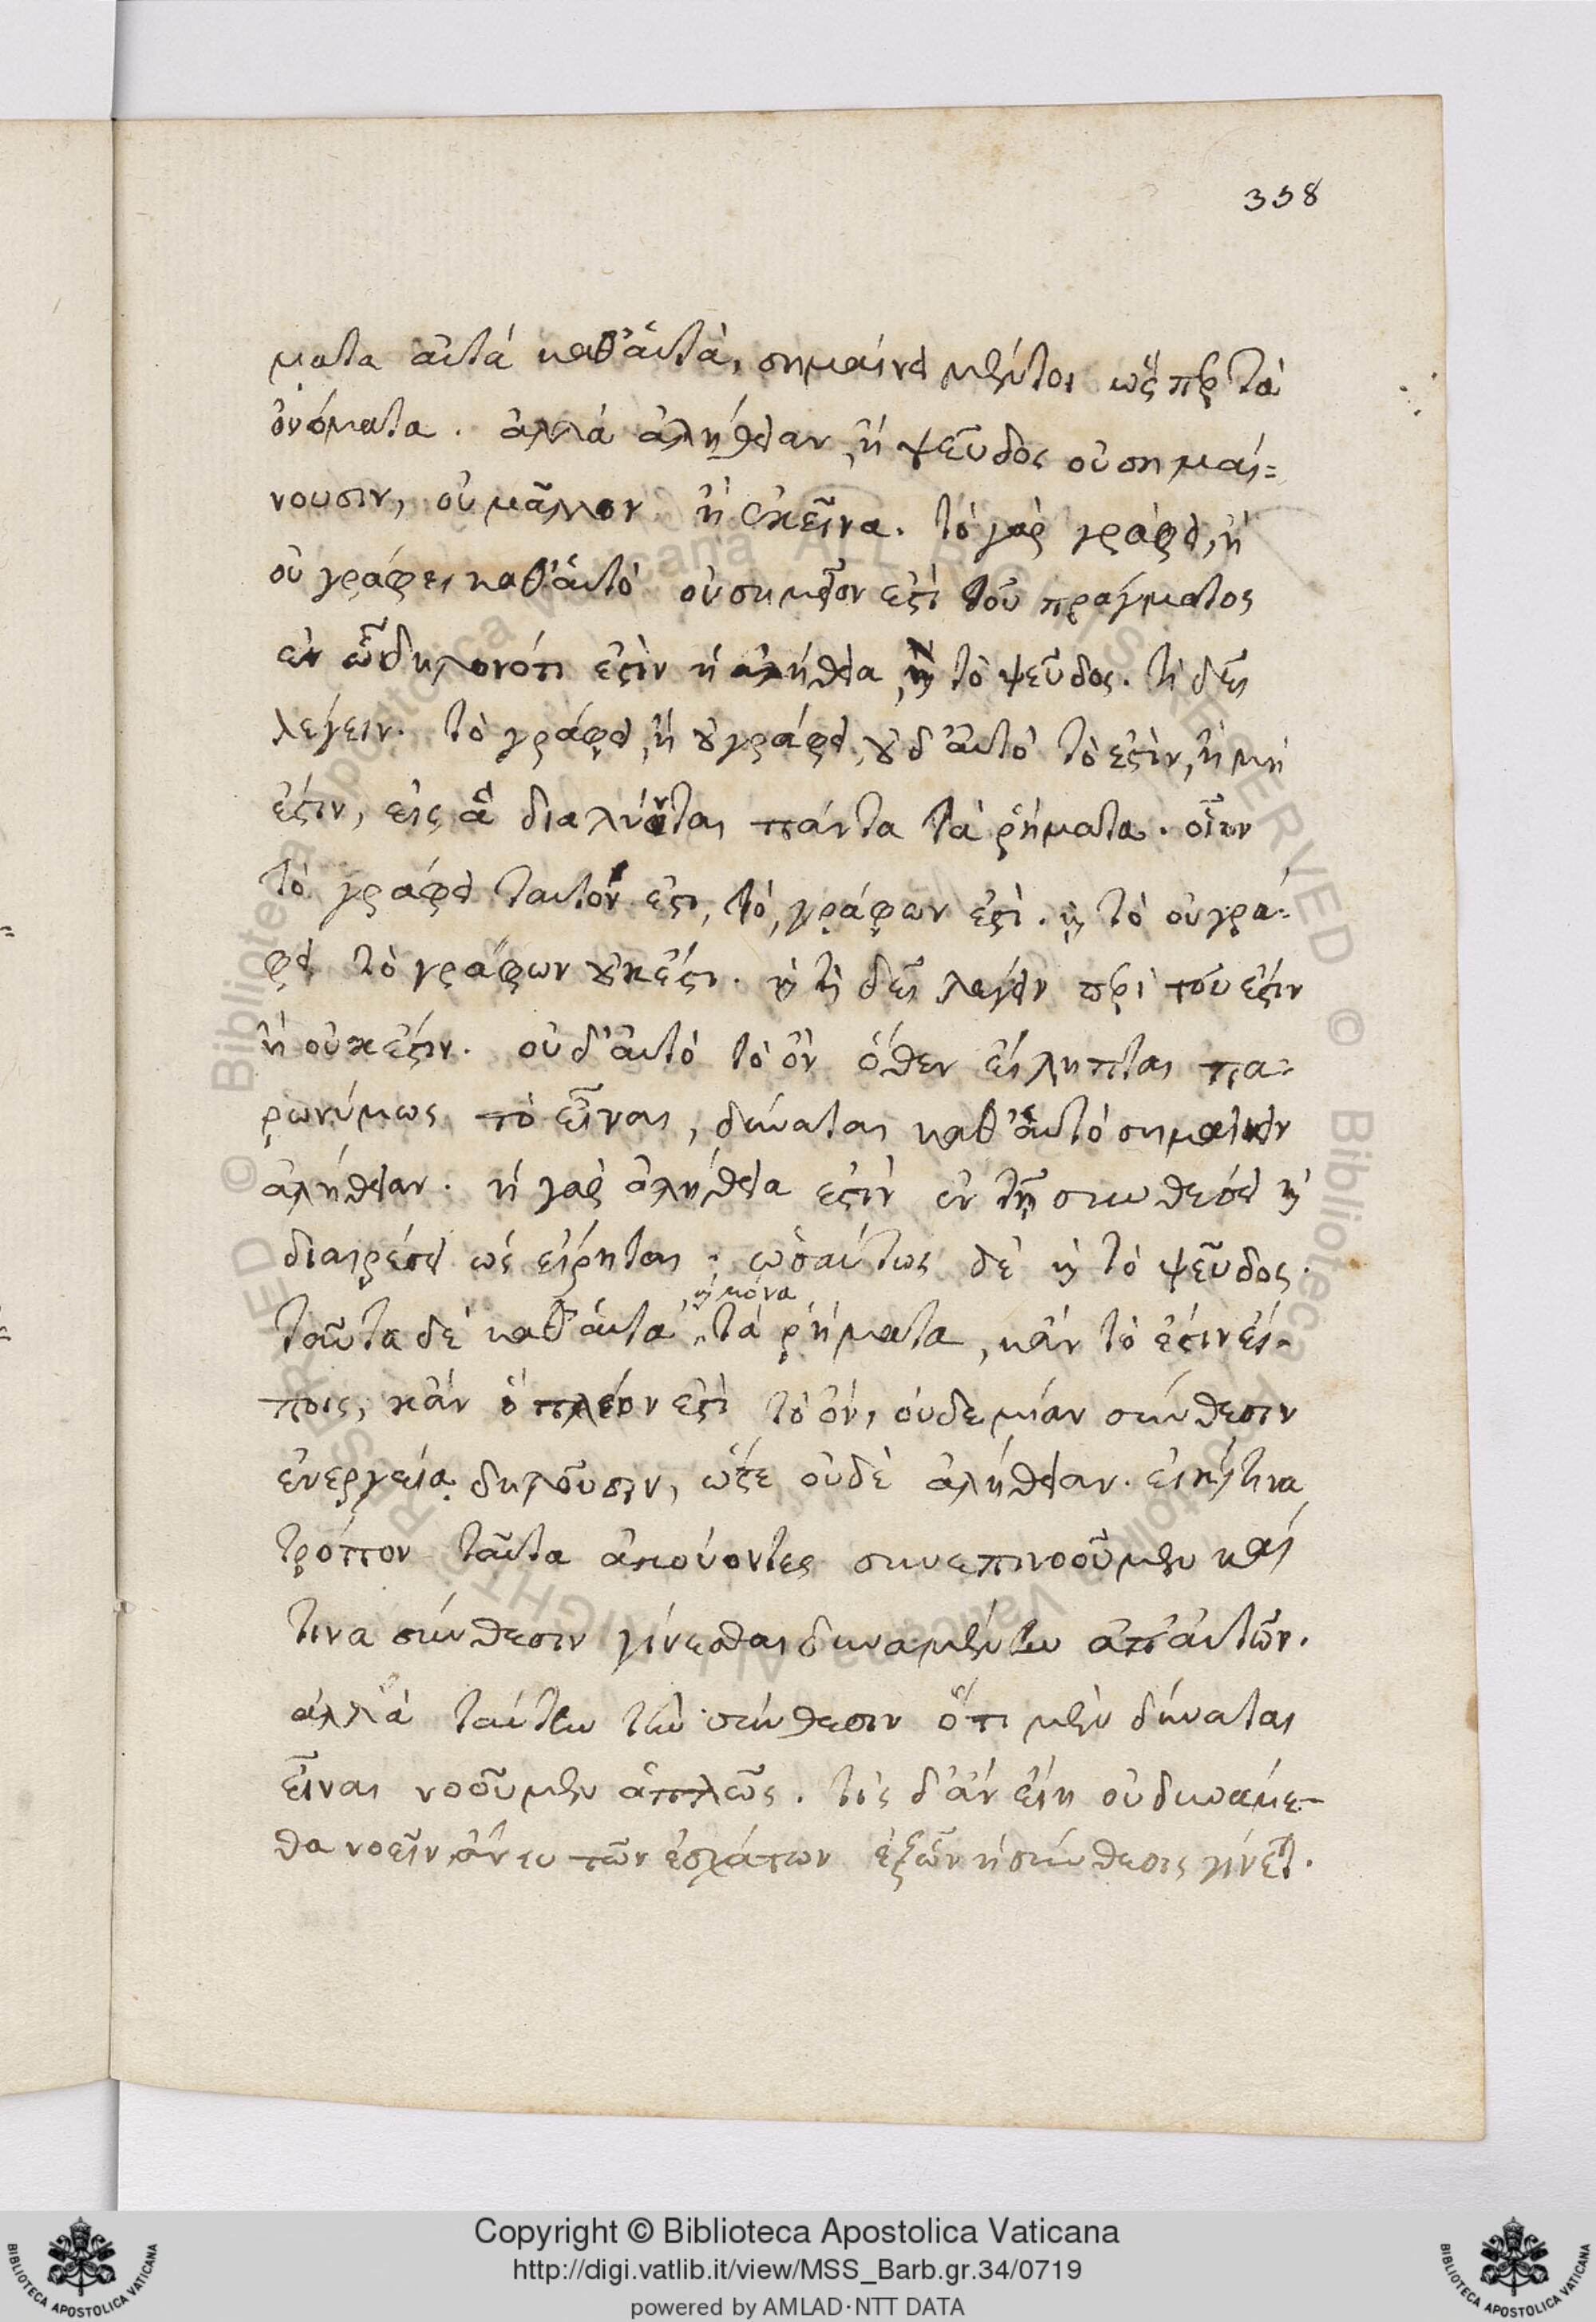 358
ματα αὐτά καθ' ἁυτὰ, σημαίνει μέντοι ὥσπερ τὰ
ὀνόματα. ἀλλὰ ἀλήθειαν, ἢ ψεῦδος οὐ σημαί=
νουσιν, οὐ μᾶλλον ἢ ἐκεῖνα. τὸ γὰρ γράφει, ἢ
οὐ γράφει καθ' ἁυτὸ οὐ σημεῖον ἐστὶ τοῦ πράγματος
ἐν ᾧ δηλονότι ἐστὶν ἡ ἀλήθεια, ἢ τὸ ψεῦδος. τί δεῖ
λέγειν. τὸ γράφει, ἢ οὐ γράφει, οὐδ' αὐτὸ τὸ ἐστὶν, ἢ μὴ
ἐστιν, εἰς ἃ διαλύεται πάντα τὰ ῥήματα. οἷον
τὸ γράφει ταυτόν ἐστι, τό, γράφων ἐστὶ. καὶ τὸ οὐ γρά=
φει τὸ γράφων οὐκ ἔστι. καὶ τί δεῖ λέγειν περὶ τοῦ ἔστιν
ἢ οὐκ ἔστιν. οὐδ' αὐτὸ τὸ ὂν ὅθεν εἴληπται πα=
ρωνύμως τὸ εἶναι, δύναται καθ' ἁυτὸ σημαίνειν
ἀλήθειαν. ἡ γὰρ ἀλήθεια ἐστὶν ἐν τῇ συνθέσει καὶ
διαιρέσει ὡς εἴρηται· ὡσαύτως δὲ καὶ τὸ ψεῦδος.
καὶ μόνα
ταῦτα δὲ καθ' ἁυτὰ τὰ ῥήματα, κἂν τὸ ἔστιν εἴ=
ποις, κἂν ὃ πλέον ἐστὶ τὸ ὄν, οὐδεμίαν σύνθεσιν
ἐνεργείᾳ δηλοῦσιν, ὥστε οὐδὲ ἀλήθειαν. εἰ καί τινα
τρόπον ταῦτα ἀκούοντες συνεπινοοῦμεν καί
τινα σύνθεσιν γίνεσθαι δυναμένην ἀπ' αὐτῶν.
ἀλλὰ ταύτην τὴν σύνθεσιν ὅτι μὲν δύναται
εἶναι νοοῦμεν ἁπλῶς. τίς δ' ἂν εἴη οὐ δυνάμε=
θα νοεῖν ἄνευ τῶν ἐσχάτων ἐξ ὧν ἡ σύνθεσις γίνεται.
Copyright © Biblioteca Apostolica Vaticana
http://digi.vatlib.it/view/MSS_Barb.gr.34/0719
powered by AMLAD·NTT DATA